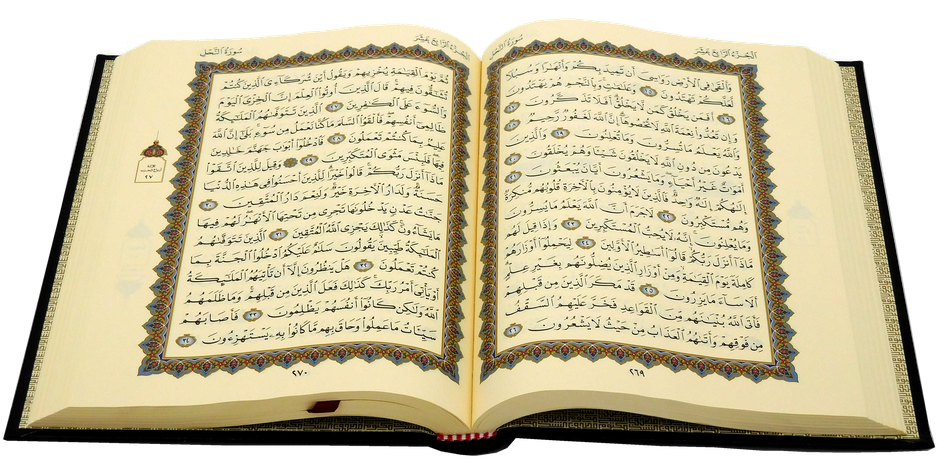 سُورَةُ النَّحْلِ
الجُزْءُ الرَّابِعَ عَشَرَ
وَأَلْقَىٰ فِي ٱلْأَرْضِ رَوَٰسِيَ أَن تَمِيدَ بِكُمْ وَأَنْهَٰرًا وَسُبُلًا
لَّعَلَّكُمْ تَهْتَدُونَ ١٥ وَعَلَٰمَٰتٍ وَبِٱلنَّجْمِ هُمْ يَهْتَدُونَ
١٦ أَفَمَن يَخْلُقُ كَمَن لَّا يَخْلُقُ أَفَلَا تَذَكَّرُونَ ١٧
وَإِن تَعُدُّوا۟ نِعْمَةَ ٱللَّهِ لَا تُحْصُوهَآ إِنَّ ٱللَّهَ لَغَفُورٌ رَّحِيمٌ ١٨
وَٱللَّهُ يَعْلَمُ مَا تُسِرُّونَ وَمَا تُعْلِنُونَ ١٩ وَٱلَّذِينَ
يَدْعُونَ مِن دُونِ ٱللَّهِ لَا يَخْلُقُونَ شَيْـًٔا وَهُمْ يُخْلَقُونَ ٢٠
أَمْوَٰتٌ غَيْرُ أَحْيَآءٍ وَمَا يَشْعُرُونَ أَيَّانَ يُبْعَثُونَ ٢١
إِلَٰهُكُمْ إِلَٰهٌ وَٰحِدٌ فَٱلَّذِينَ لَا يُؤْمِنُونَ بِٱلْءَاخِرَةِ قُلُوبُهُم مُّنكِرَةٌ
وَهُم مُّسْتَكْبِرُونَ ٢٢ لَا جَرَمَ أَنَّ ٱللَّهَ يَعْلَمُ مَا يُسِرُّونَ
وَمَا يُعْلِنُونَ إِنَّهُۥ لَا يُحِبُّ ٱلْمُسْتَكْبِرِينَ ٢٣ وَإِذَا قِيلَ لَهُم
مَّاذَآ أَنزَلَ رَبُّكُمْ قَالُوٓا۟ أَسَٰطِيرُ ٱلْأَوَّلِينَ ٢٤ لِيَحْمِلُوٓا۟ أَوْزَارَهُمْ
كَامِلَةً يَوْمَ ٱلْقِيَٰمَةِ وَمِنْ أَوْزَارِ ٱلَّذِينَ يُضِلُّونَهُم بِغَيْرِ عِلْمٍ
أَلَا سَآءَ مَا يَزِرُونَ ٢٥ قَدْ مَكَرَ ٱلَّذِينَ مِن قَبْلِهِمْ
فَأَتَى ٱللَّهُ بُنْيَٰنَهُم مِّنَ ٱلْقَوَاعِدِ فَخَرَّ عَلَيْهِمُ ٱلسَّقْفُ
مِن فَوْقِهِمْ وَأَتَىٰهُمُ ٱلْعَذَابُ مِنْ حَيْثُ لَا يَشْعُرُونَ ٢٦
٢٦٩
الجُزْءُ الرَّابِعَ عَشَرَ
سُورَةُ النَّحْلِ
ثُمَّ يَوْمَ ٱلْقِيَٰمَةِ يُخْزِيهِمْ وَيَقُولُ أَيْنَ شُرَكَآءِيَ ٱلَّذِينَ كُنتُمْ
تُشَٰٓقُّونَ فِيهِمْ قَالَ ٱلَّذِينَ أُوتُوا۟ ٱلْعِلْمَ إِنَّ ٱلْخِزْيَ ٱلْيَوْمَ
وَٱلسُّوٓءَ عَلَى ٱلْكَٰفِرِينَ ٢٧ ٱلَّذِينَ تَتَوَفَّىٰهُمُ ٱلْمَلَٰٓئِكَةُ
ظَالِمِيٓ أَنفُسِهِمْ فَأَلْقَوُا۟ ٱلسَّلَمَ مَا كُنَّا نَعْمَلُ مِن سُوٓءٍ بَلَىٰٓ إِنَّ ٱللَّهَ
عَلِيمٌۢ بِمَا كُنتُمْ تَعْمَلُونَ ٢٨ فَٱدْخُلُوٓا۟ أَبْوَٰبَ جَهَنَّمَ خَٰلِدِينَ
فِيهَا فَلَبِئْسَ مَثْوَى ٱلْمُتَكَبِّرِينَ ٢٩ وَقِيلَ لِلَّذِينَ ٱتَّقَوْا۟
مَاذَآ أَنزَلَ رَبُّكُمْ قَالُوا۟ خَيْرًا لِّلَّذِينَ أَحْسَنُوا۟ فِي هَٰذِهِ ٱلدُّنْيَا
حَسَنَةٌ وَلَدَارُ ٱلْءَاخِرَةِ خَيْرٌ وَلَنِعْمَ دَارُ ٱلْمُتَّقِينَ ٣٠
جَنَّٰتُ عَدْنٍ يَدْخُلُونَهَا تَجْرِي مِن تَحْتِهَا ٱلْأَنْهَٰرُ لَهُمْ فِيهَا
مَا يَشَآءُونَ كَذَٰلِكَ يَجْزِي ٱللَّهُ ٱلْمُتَّقِينَ ٣١ ٱلَّذِينَ تَتَوَفَّىٰهُمُ
ٱلْمَلَٰٓئِكَةُ طَيِّبِينَ يَقُولُونَ سَلَٰمٌ عَلَيْكُمُ ٱدْخُلُوا۟ ٱلْجَنَّةَ بِمَا
كُنتُمْ تَعْمَلُونَ ٣٢ هَلْ يَنظُرُونَ إِلَّآ أَن تَأْتِيَهُمُ ٱلْمَلَٰٓئِكَةُ
أَوْ يَأْتِيَ أَمْرُ رَبِّكَ كَذَٰلِكَ فَعَلَ ٱلَّذِينَ مِن قَبْلِهِمْ وَمَا ظَلَمَهُمُ
ٱللَّهُ وَلَٰكِن كَانُوٓا۟ أَنفُسَهُمْ يَظْلِمُونَ ٣٣ فَأَصَابَهُمْ
سَيِّـَٔاتُ مَا عَمِلُوا۟ وَحَاقَ بِهِم مَّا كَانُوا۟ بِهِۦ يَسْتَهْزِءُونَ ٣٤
٢٧٠
٢٧